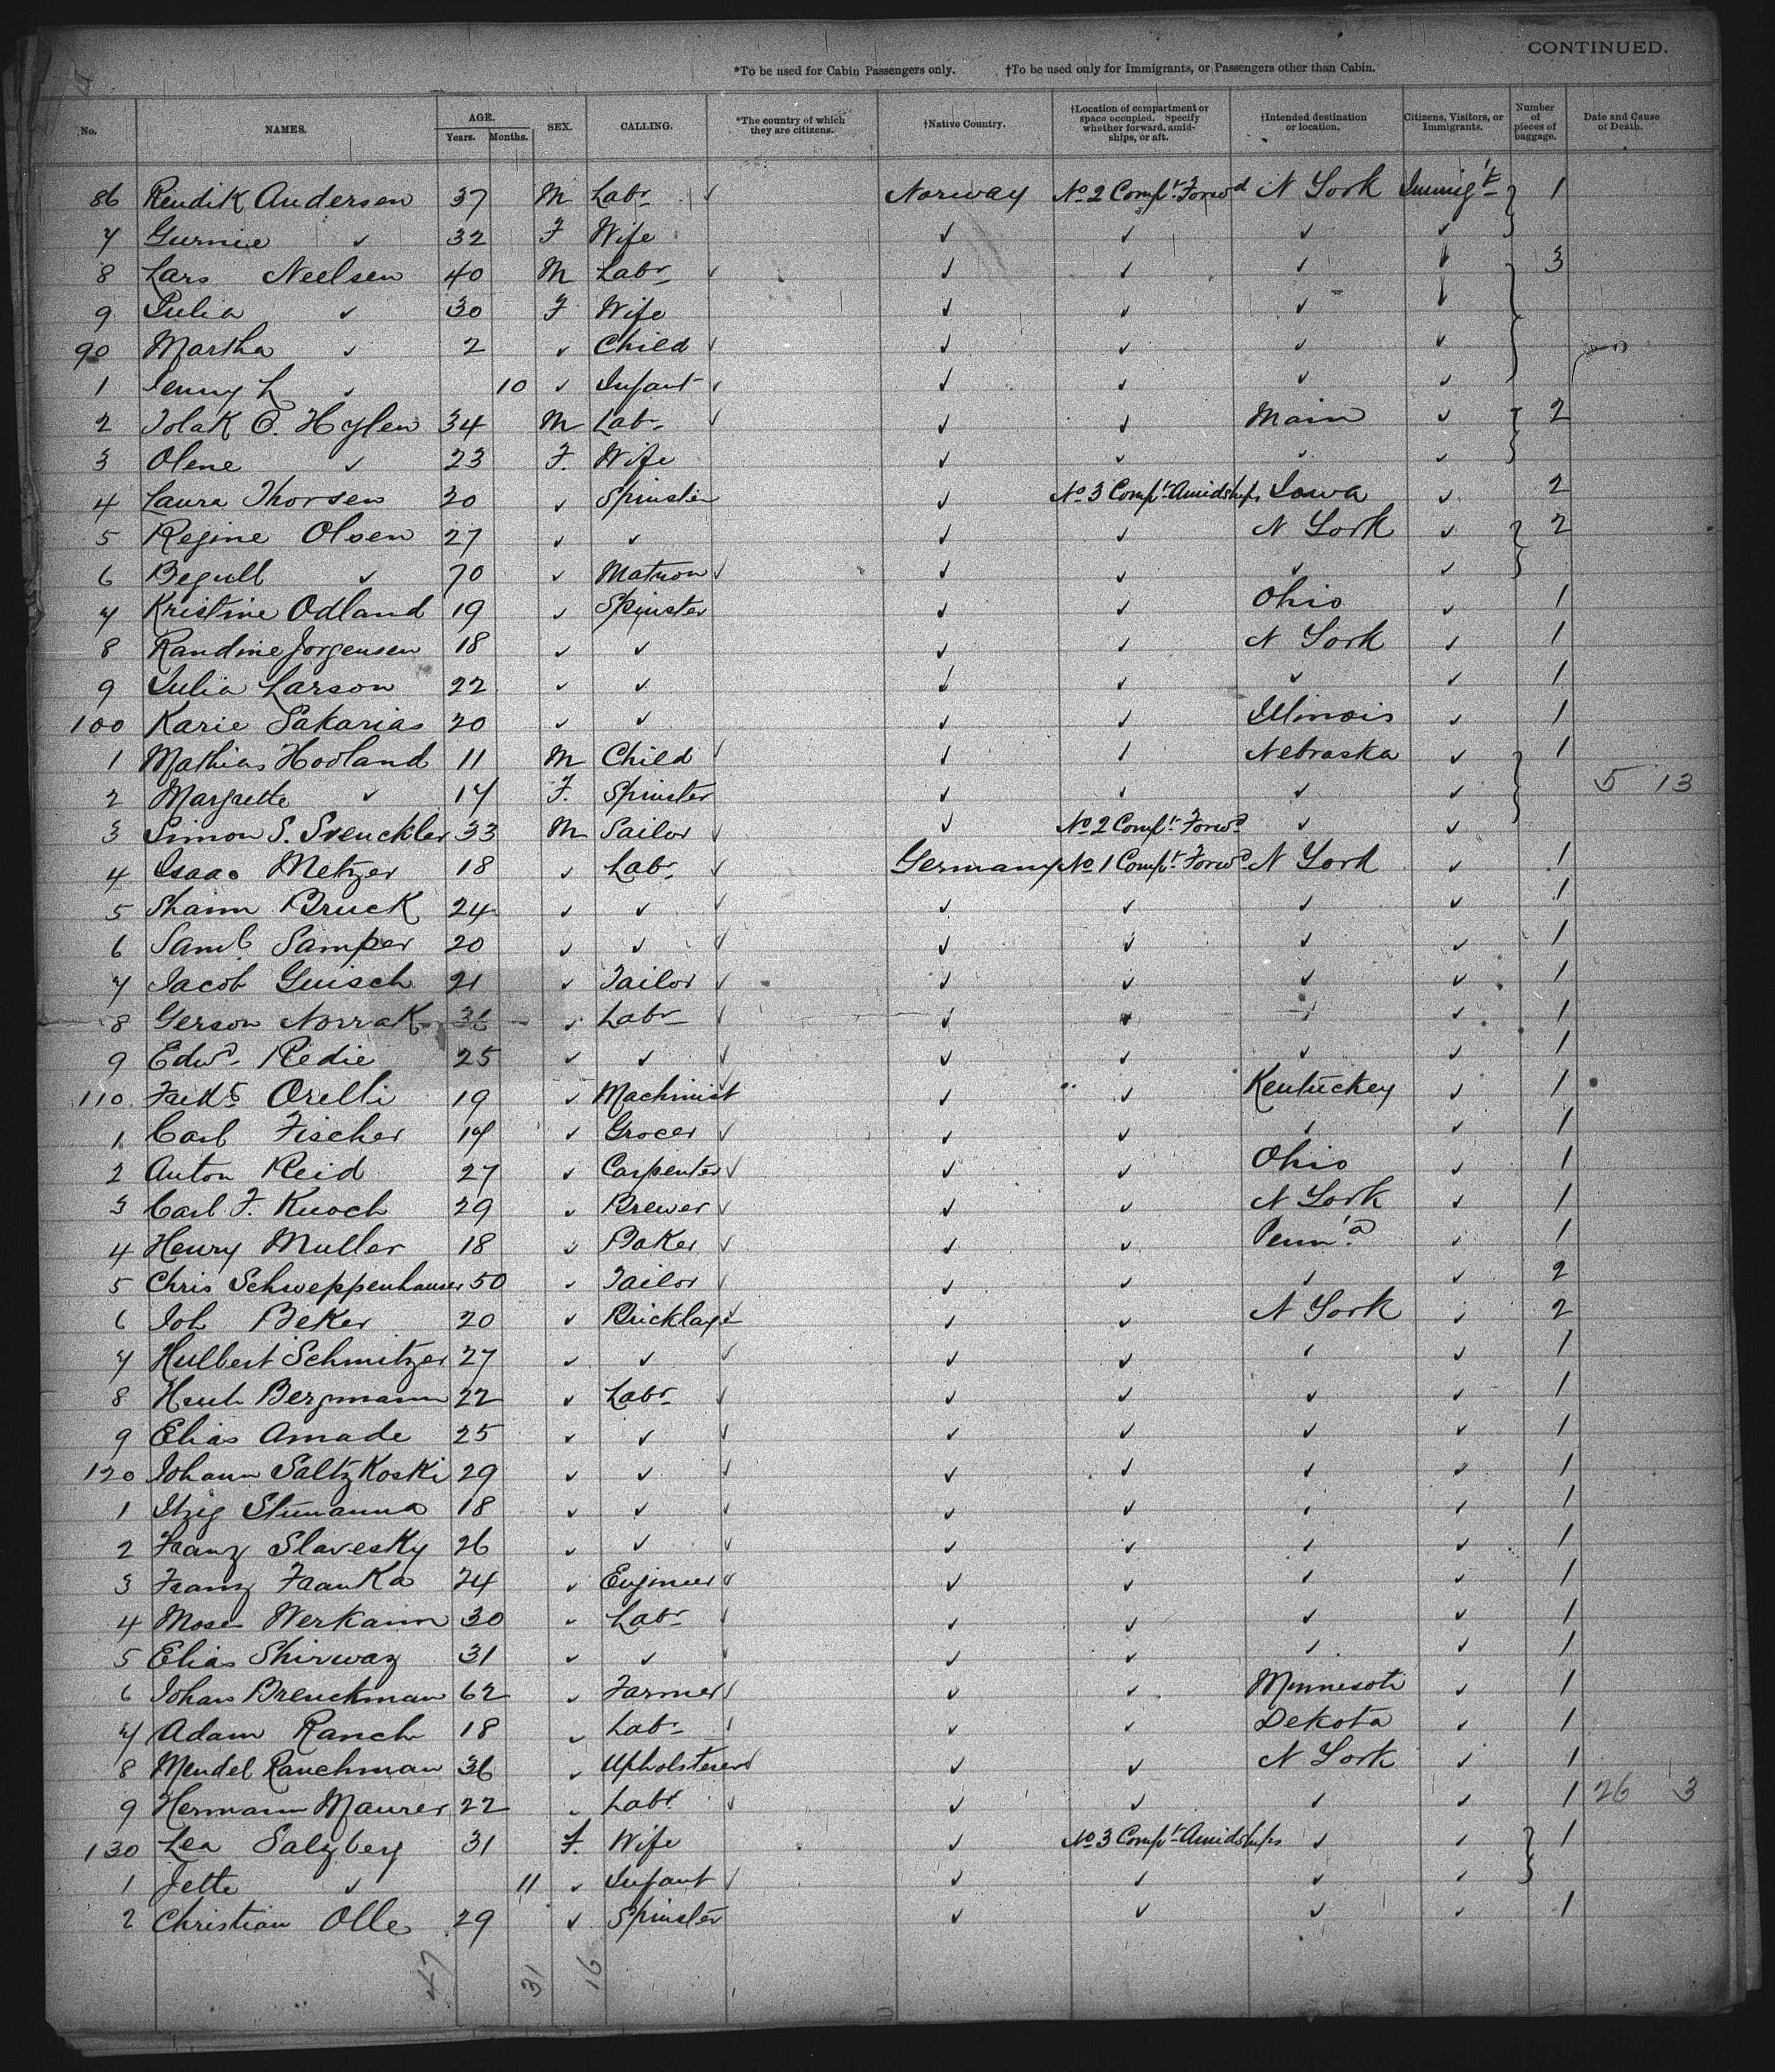 CONTINUED.
*To be used for Cabin Passengers only. †To be used only for Immigrants, or Passengers other than Cabin.
No. NAMES. AGE. Years. Months. SEX. CALLING. *The country of which they are citizens. †Native Country. †Location of compartment or space occupied. Specify whether forward, amidships, or aft. †Intended destination or location. Citizens, Visitors, or Immigrants. Number of pieces of baggage. Date and Cause of Death.
86 Rendik Andersen 37 M Labr ✓ Norway No 2 Compt Forwd N York Immigt 1
7 Gurnie ✓ 32 F Wife ✓ ✓ ✓ ✓
8 Lars Neelsen 40 M Labr ✓ ✓ ✓ ✓ ✓ 3
9 Julia ✓ 30 F Wife ✓ ✓ ✓ ✓
90 Martha ✓ 2 ✓ Child ✓ ✓ ✓ ✓ ✓
1 Jenny L ✓ 10 ✓ Infant ✓ ✓ ✓ ✓ ✓
2 Tolak C. Hylen 34 M Labr ✓ ✓ ✓ Main ✓ 2
3 Olene ✓ 23 F. Wife ✓ ✓ ✓ ✓
4 Laura Thorsen 20 ✓ Spinster ✓ No 3 Compt Amidships Iowa ✓ 2
5 Regine Olsen 27 ✓ ✓ ✓ ✓ N York ✓ 2
6 Begull ✓ 70 ✓ Matron ✓ ✓ ✓ ✓ ✓
7 Kristine Odland 19 ✓ Spinster ✓ ✓ Ohio ✓ 1
8 Randine Jorgensen 18 ✓ ✓ ✓ ✓ N York ✓ 1
9 Julia Larson 22 ✓ ✓ ✓ ✓ ✓ ✓ 1
100 Karie Sakarias 20 ✓ ✓ ✓ ✓ Illinois ✓ 1
1 Mathias Hodland 11 M Child ✓ ✓ ✓ Nebraska ✓ 1
2 Margrette ✓ 17 F. Spinster ✓ ✓ ✓ ✓ 5 13
3 Simon S. Svenckler 33 M Sailor ✓ ✓ No 2 Compt Forwd ✓ ✓
4 Isaac Metzer 18 ✓ Labr ✓ Germany No 1 Compt Forwd N York ✓ 1
5 Shaim Bruck 24 ✓ ✓ ✓ ✓ ✓ ✓ ✓ 1
6 Saml Samper 20 ✓ ✓ ✓ ✓ ✓ ✓ ✓ 1
7 Jacob Guisch 21 ✓ Tailor ✓ ✓ ✓ ✓ ✓ 1
8 Gerson Norrak 36 ✓ Labr ✓ ✓ ✓ ✓ ✓ 1
9 Edwd Riedie 25 ✓ ✓ ✓ ✓ ✓ ✓ ✓ 1
110 Orelli 19 ✓ Machinist ✓ ✓ Kentuckey ✓ 1
1 Carl Fischer 17 ✓ Grocer ✓ ✓ ✓ ✓ ✓ 1
2 Anton Reid 27 ✓ Carpenter ✓ ✓ ✓ Ohio ✓ 1
3 Carl F. Knoch 29 ✓ Brewer ✓ ✓ ✓ N York ✓ 1
4 Henry Muller 18 ✓ Baker ✓ ✓ ✓ Penn'a ✓ 1
5 Chris Schweppenhauser 50 ✓ Tailor ✓ ✓ ✓ ✓ ✓ 2
6 Joh Beker 20 ✓ Bricklayer ✓ ✓ N York ✓ 2
7 Hulbert Schmitzer 27 ✓ ✓ ✓ ✓ ✓ ✓ ✓ 1
8 Heuh Bergmann 22 ✓ Labr ✓ ✓ ✓ ✓ ✓ 1
9 Elias Amade 25 ✓ ✓ ✓ ✓ ✓ ✓ ✓ 1
120 Johann Saltzkoski 29 ✓ ✓ ✓ ✓ ✓ ✓ ✓ 1
1 Itzig 18 ✓ ✓ ✓ ✓ ✓ ✓ ✓ 1
2 Franz Slavesky 26 ✓ ✓ ✓ ✓ ✓ ✓ ✓ 1
3 Franz Franka 24 ✓ Engineer ✓ ✓ ✓ ✓ ✓ 1
4 Moses Werkann 30 ✓ Labr ✓ ✓ ✓ ✓ ✓ 1
5 Elias Shirwaz 31 ✓ ✓ ✓ ✓ ✓ ✓ ✓ 1
6 Johan Breuckman 62 ✓ Farmer ✓ ✓ ✓ Minnesota ✓ 1
7 Adam Ranch 18 ✓ Labr ✓ ✓ ✓ Dekota ✓ 1
8 Mendel Rauchman 36 ✓ Upholsterer ✓ ✓ ✓ N York ✓ 1
9 Hermann Maurer 22 ✓ Labr ✓ ✓ ✓ ✓ ✓ 1 26 3
130 Lea Salzberg 31 F. Wife ✓ No 3 Compt Amidships ✓ ✓ 1
1 Jette ✓ 11 ✓ Infant ✓ ✓ ✓ ✓ ✓
2 Christian Olle 29 ✓ Spinster ✓ ✓ ✓ ✓ 1
47 31 16